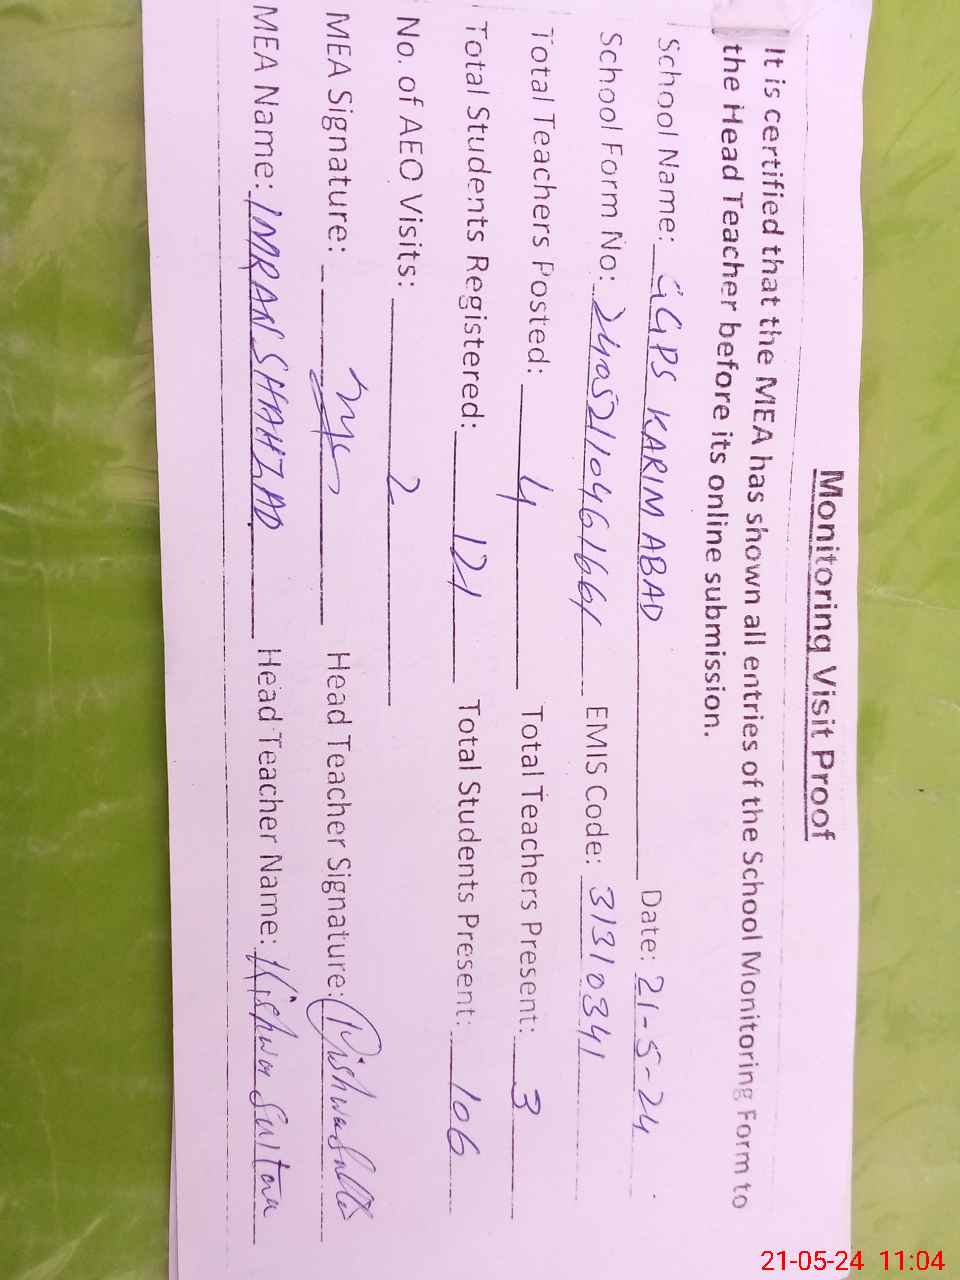 Monitoring Visit Proof
It is certified that the MEA has shown all entries of the School Monitoring Form to
the Head Teacher before its online submission.
School Name: GGPS KARIM ABAD Date: 21-5-24
School Form No: 24052110461661 EMIS Code: 31310341
Total Teachers Posted: 4 Total Teachers Present: 3
Total Students Registered: 121 Total Students Present: 106
No. of AEO Visits: 2
MEA Signature: Head Teacher Signature:
MEA Name: IMRAN SHAHZAD Head Teacher Name: Kishwar Sultana
21-05-24 11:04